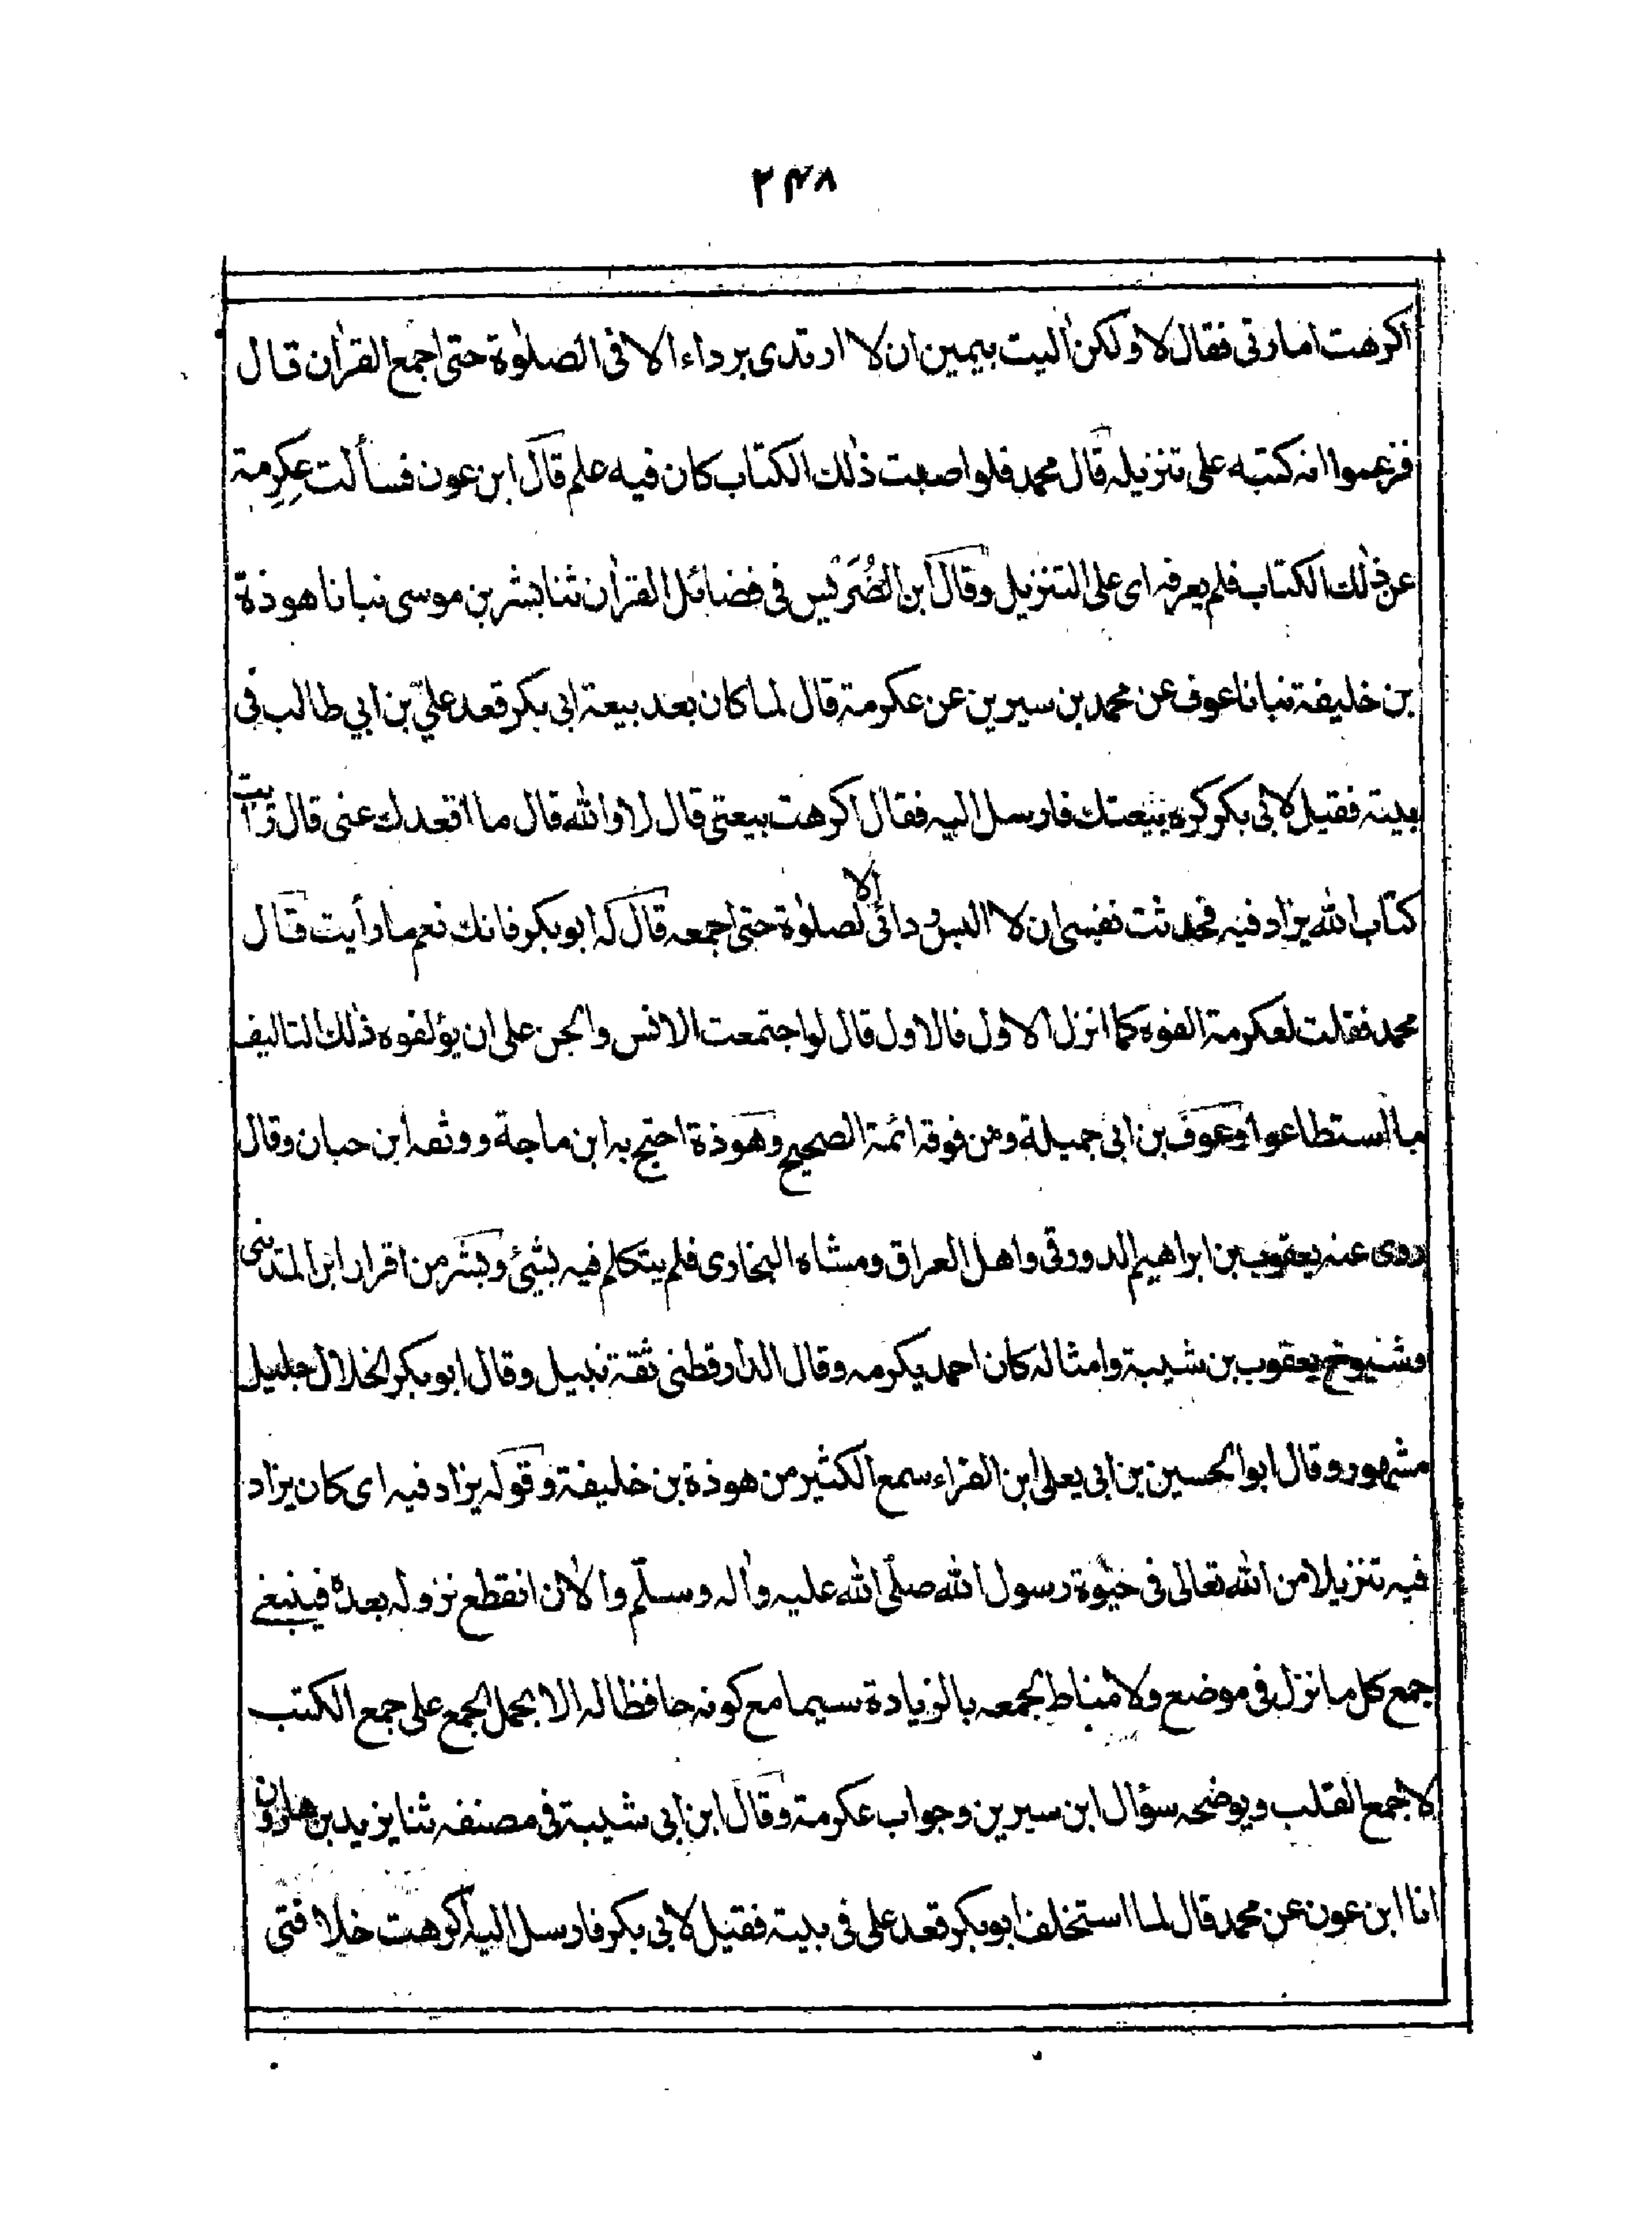 ۲۴۸
اكرهت امارتى فقال لا ولكن اٰليت بيمين ان لا ارتدى برداء الا فى الصلوٰة حتى اجمع القرأن قال
فزعموا انه كتبه على تنزيله قال محمد فلو اصبت ذٰلك الكتاب كان فيه علم قال ابن عون فسألت عِكرِمة
عن ذٰلك الكتاب فلم يعرفه اى على التنزيل وقال ابن الضُّرَيْس فى فضائل القرأن ثنا بشر بن موسى نبانا هوذة
بن خليفة نبانا عوف عن محمد بن سيرين عن عكرمة قال لما كان بعد بيعة ابى بكر قعد علىّ بن ابي طالب فى
بيته فقيل لابى بكر كره بيعتك فارسل اليه فقال اكرهت بيعتى قال لا والله قال ما اقعدك عنى قال رأيت
كتاب الله يزاد فيه فحدثت نفسى ان لا البس ردائى الا لصلوٰة حتى اجمعه قال له ابوبكر فانك نعم ما رأيت قال
محمد فقلت لعكرمة الفوه كما انزل الاول فالاول قال لو اجتمعت الانس والجن على ان يؤلفوه ذٰلك التاليف
ما استطاعوا وعوف بن ابى جميلة ومن فوقه ائمة الصحيح وهوذة احتج به ابن ماجة ووثقه ابن حبان وقال
روى عنه يعقوب بن ابراهيم الدورقى واهل العراق ومشاه البخارى فلم يتكلم فيه بشئ وبشر من اقران ابن المدينى
وشيوخ يعقوب بن شيبة وامثاله كان احمد يكرمه وقال الدارقطنى ثقة نبيل وقال ابوبكر الخلال جليل
مشهور وقال ابو الحسين بن ابى يعلى ابن الفراء سمع الكثير من هوذة بن خليفة وقوله يزاد فيه اى كان يزاد
فيه تنزيلا من الله تعالى فى حيٰوة رسول الله صلّى الله عليه واٰله وسلّم والاٰن انقطع نزوله بعدهٗ فينبغى
جمع كل ما نزل فى موضع ولا مناط لجمعه بالزيادة سيما مع كونه حافظا له الا بحمل الجمع على جمع الكتب
لا جمع القلب ويوضحه سؤال ابن سيرين وجواب عكرمة وقال ابن ابى شيبة فى مصنفه ثنا يزيد بن هارون
انا ابن عون عن محمد قال لما استخلف ابوبكر قعد على فى بيته فقيل لابى بكر فارسل اليه أكرهت خلافتى